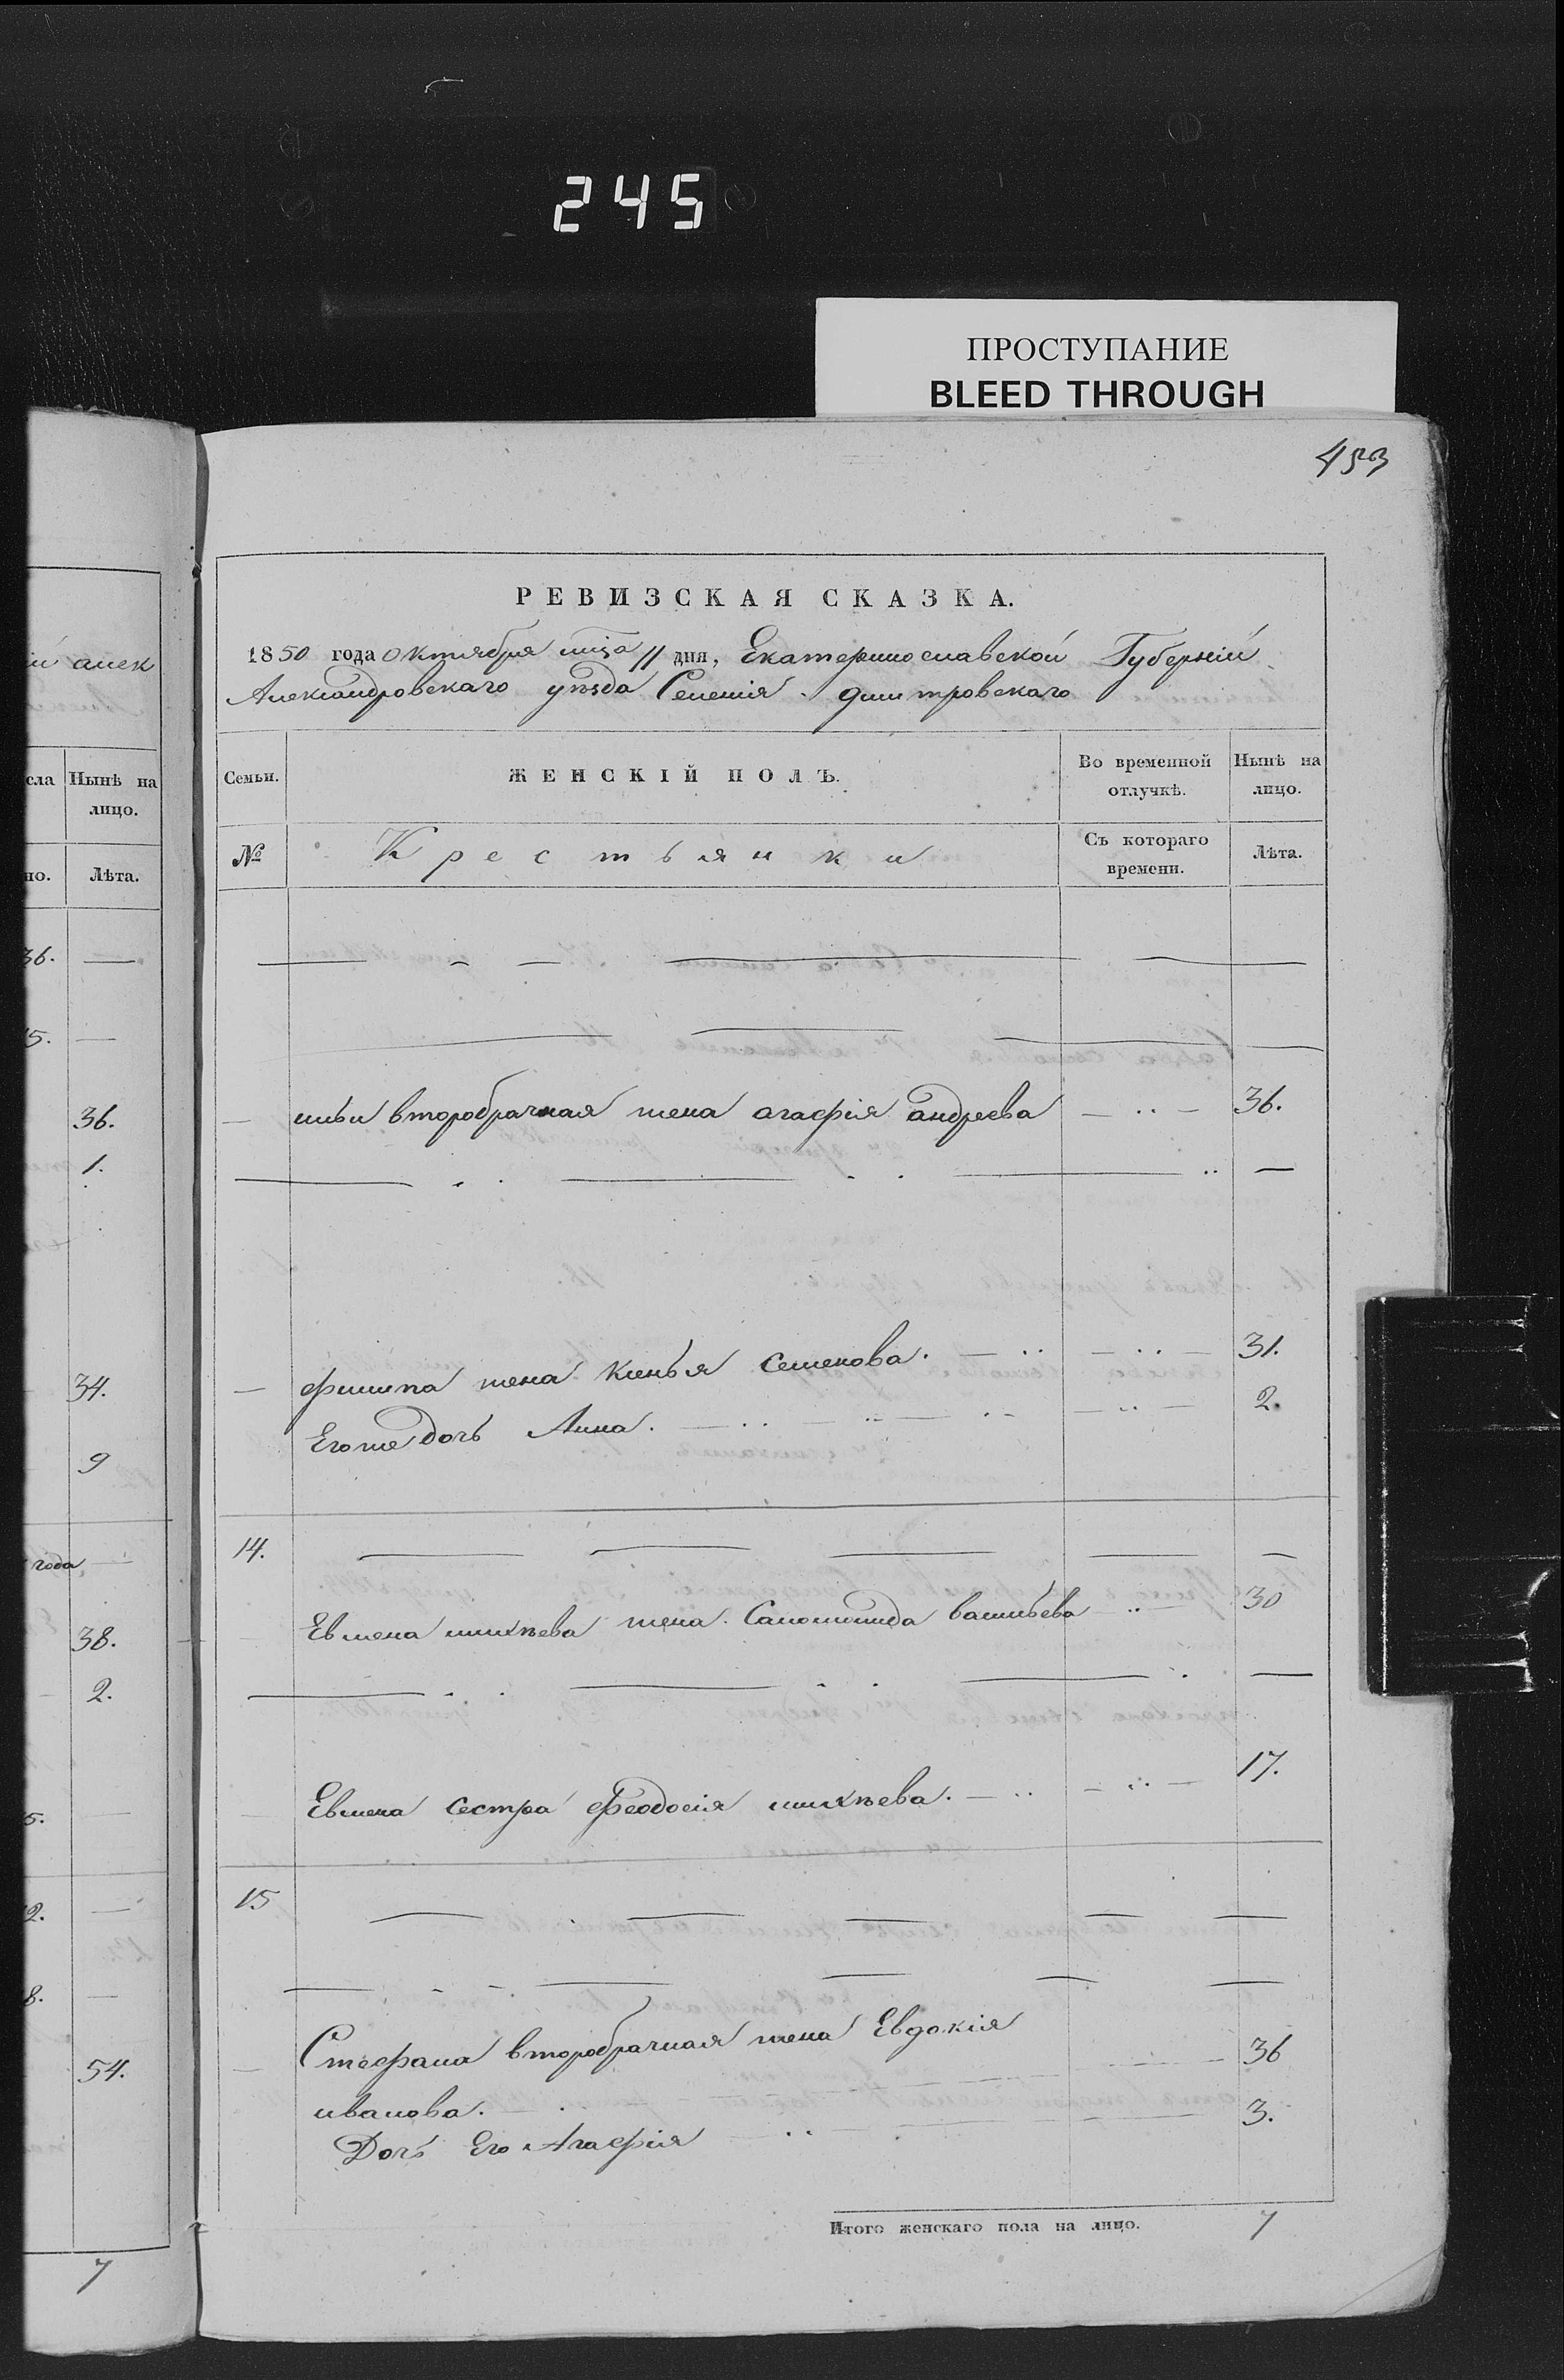 245
ПРОСТУПАНИЕ
BLEED THROUGH
453
РЕВИЗСКАЯ СКАЗКА.
1850 года октября мца 11 дня, Екатеринославской Губерніи
Александровскаго уѣзда Селенія Дмитровскаго
Семьи. ЖЕНСКІЙ ПОЛЪ. Во временной отлучкѣ. Нынѣ на лицо.
№ Крестьянки Съ котораго времени. Лѣта.
ильи второбрачная жена агафія андреева 36.
филипа жена Килья Семенова. 31.
Егоже дочь Анна. 2.
14.
Евмена михѣева жена Саломонида васильева 30
Евмена сестра Феодосія михѣева. 17.
15
Стефана второбрачная жена Евдокія
иванова. 36
Дочь Его Агафія 3.
Итого женскаго пола на лицо. 7
алек
сла Нынѣ на лицо.
но. Лѣта.
36.
5.
36.
1.
34.
9
года
38.
2.
5.
2.
8.
54.
7